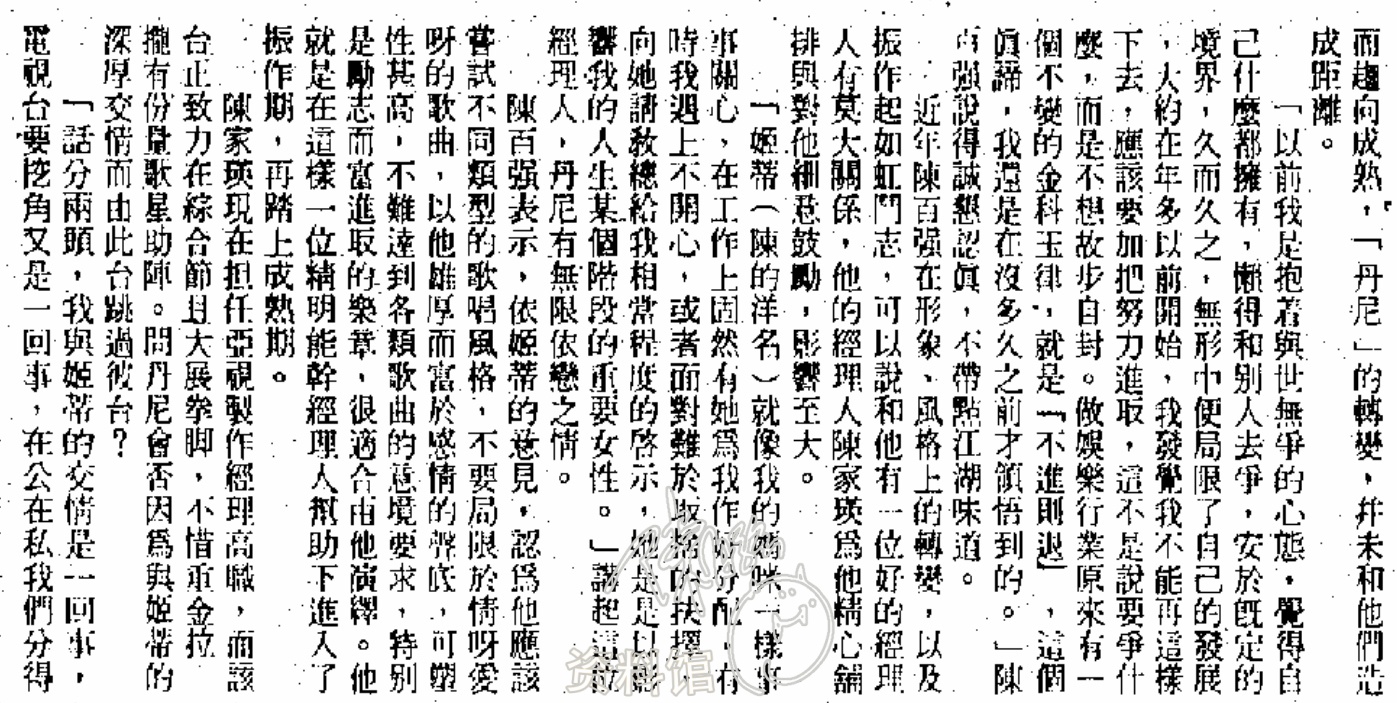 而趨向成熟，「丹尼」的轉變，并未和他們造
成距離。
「以前我是抱着與世無爭的心態，覺得自
己什麼都擁有，懶得和別人去爭，安於既定的
境界，久而久之，無形中便局限了自己的發展
，大約在年多以前開始，我發覺我不能再這樣
下去，應該要加把努力進取，這不是說要爭什
麼，而是不想故步自封。做娛樂行業原來有一
個不變的金科玉律，就是「不進則退」，這個
眞諦，我還是在沒多久之前才領悟到的。」陳
百强說得誠懇認眞，不帶點江湖味道。
近年陳百强在形象、風格上的轉變，以及
振作起如虹鬥志，可以說和他有一位好的經理
人有莫大關係，他的經理人陳家瑛爲他精心舖
排與對他細意鼓勵，影響至大。
「姬蒂（陳的洋名）就像我的媽咪一樣事
事關心，在工作上固然有她爲我作好分配，有
時我遇上不開心，或者面對難於取捨的抉擇，
向她請敎總給我相當程度的啓示，她是足以影
響我的人生某個階段的重要女性。」講起這位
經理人，丹尼有無限依戀之情。
陳百强表示，依姬蒂的意見，認爲他應該
嘗試不同類型的歌唱風格，不要局限於情呀愛
呀的歌曲，以他雄厚而富於感情的聲底，可塑
性甚高，不難達到各類歌曲的意境要求，特別
是勵志而富進取的樂章，很適合由他演繹。他
就是在這樣一位精明能幹經理人幫助下進入了
振作期，再踏上成熟期。
陳家瑛現在担任亞視製作經理高職，而該
台正致力在綜合節目大展拳脚，不惜重金拉
攏有份量歌星助陣。問丹尼會否因爲與姬蒂的
深厚交情而由此台跳過彼台？
「話分兩頭，我與姬蒂的交情是一回事，
電視台要挖角又是一回事，在公在私我們分得
资料馆